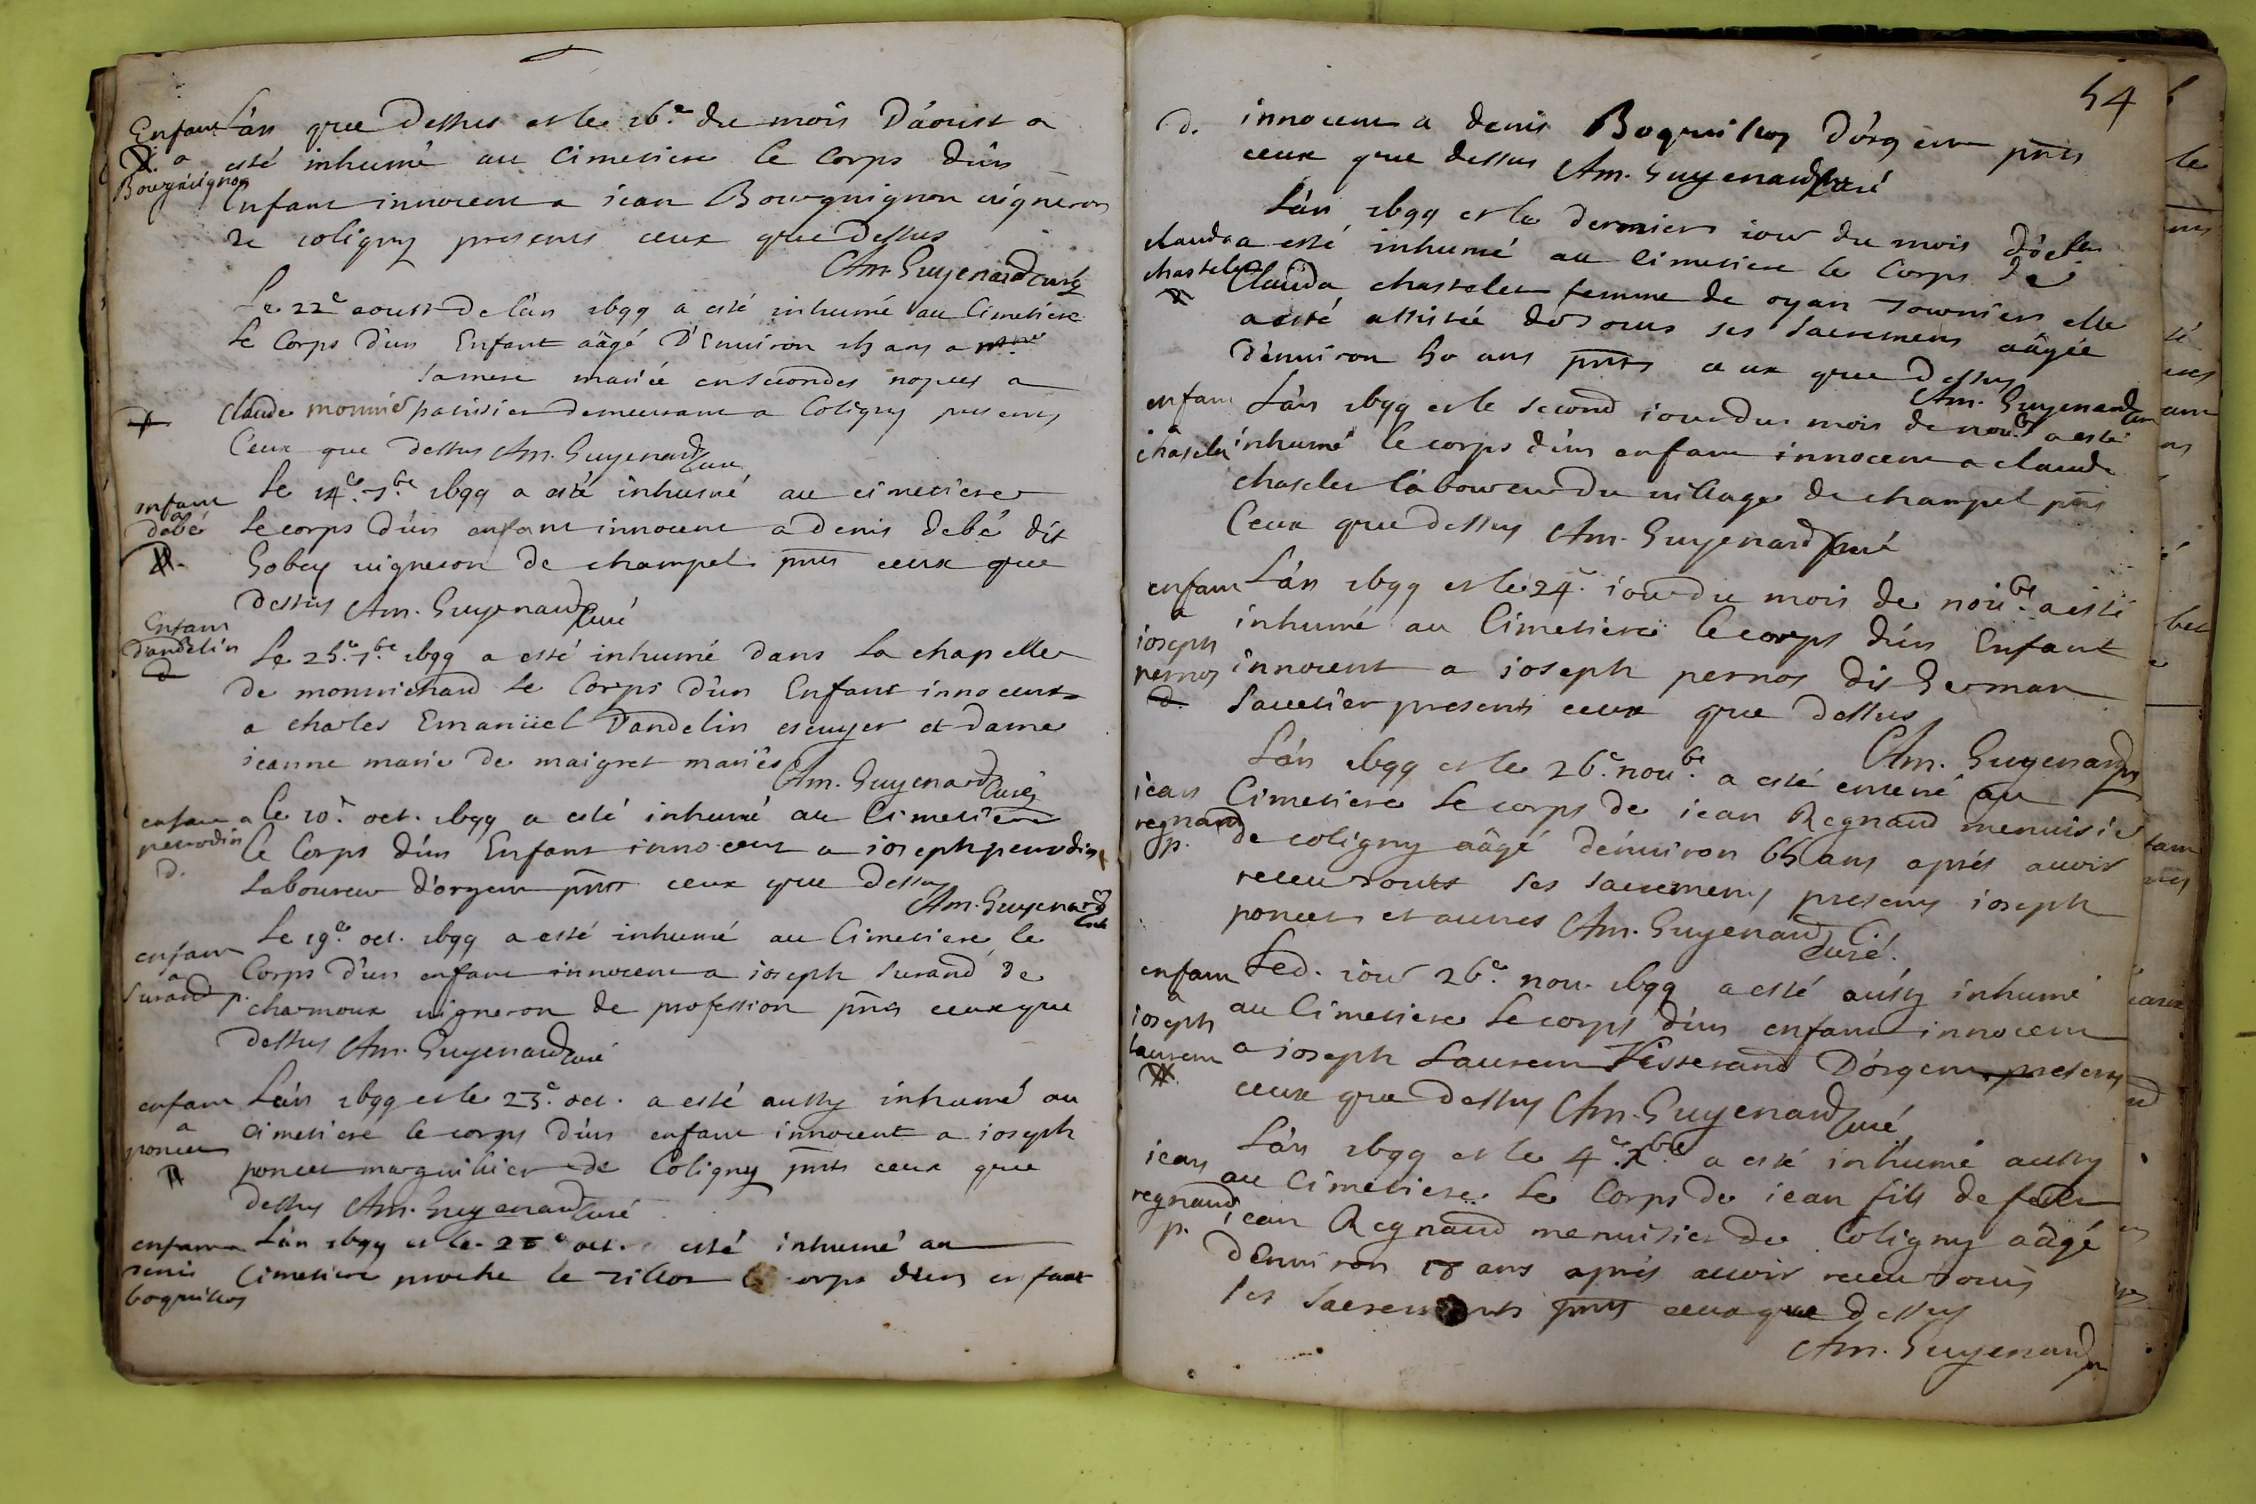 Enfant a Bourguignon
L'an que dessus et le 16.e du mois D'aoust a
esté inhumé au Cimetiere le Corps d'un
Enfant innocent a iean Bourguignon vigneron
de coligny presents ceux que dessus
Am. Guyenard curé
Le 22e aoust de l'an 1699 a esté inhumé au Cimetiere
le Corps d'un Enfant aâgé D'Enuiron 15 ans a
sa mere mariée en secondes nopces a
Claude monnié patissier demeurant a Coligny presents
Ceux que dessus Am. Guyenard Curé
enfant a debé
Le 14.e 7.bre 1699 a esté inhumé au cimetiere
le corps d'un enfant innocent a denis debé dit
Gobey uigneron de champel pnts ceux que
dessus Am. Guyenard Curé
Enfant Dandelin
d
Le 25.e 7.bre 1699 a esté inhumé dans la chapelle
de monnichard le Corps d'un Enfant innocent
a charles Emanüel Dandelin escuyer et dame
ieanne marie de maigret mariés
Am. Guyenard Curé
enfant a perrodin
d.
Le 10.e oct. 1699 a esté inhumé au Cimetiere
le Corps d'un Enfant innocent a ioseph perrodin
Laboureur d'orgent pnts ceux que dessus
Am. Guyenard Curé
enfant a Surand p.
Le 19.e oct. 1699 a esté inhumé au Cimetiere le
Corps d'un enfant innocent a ioseph Surand de
charmoux uigneron de profession pnts ceux que
dessus Am. Guyenard Curé
enfant a poncet
L'an 1699 et le 23.e oct. a esté aussy inhumé au
cimetiere le corps d'un enfant innocent a ioseph
poncet marguillier de Coligny pnts ceux que
dessus Am. Guyenard Curé
enfant a denis boquillon
L'an 1699 et le 28.e oct. esté inhumé au
Cimetiere proche le tillot le corps d'un enfant
54
d.
innocent a denis Boquillon d'orgent pnts
ceux que dessus Am. Guyenard Curé
clauda chastelet
L'an 1699 et le dernier iour du mois d'oct.
a esté inhumé au Cimetiere le Corps de
Clauda chastelet femme de oyan tournier elle
a esté assistée de tous ses sacremens aâgée
d'enuiron 50 ans pnts ceux que dessus
Am. Guyenard Curé
enfant a chastelet
L'an 1699 et le second iour du mois de nou.bre a esté
inhumé le corps d'un enfant innocent a claude
chastelet laboureur du uillage de champel pnts
Ceux que dessus Am. Guyenard Curé
enfant a ioseph pernot
d.
L'an 1699 et le 24.e iour du mois de nou.bre a esté
inhumé au Cimetiere le corps d'un Enfant
innocent a ioseph pernot dit German
Sauetier presents ceux que dessus
Am. Guyenard
iean regnaud
p.
L'an 1699 et le 26.e nou.bre a esté enterré au
Cimetiere le corps de iean Regnaud menuisié
de coligny aâgé d'enuiron 65 ans aprés auoir
receu touts ses sacremens presens ioseph
poncet et autres Am. Guyenard Curé.
enfant a ioseph laurent
Led. iour 26.e nou. 1699 a esté aussy inhumé
au Cimetiere le corps d'un enfant innocent
a ioseph Laurent Tisserand D'orgent presens
ceux que dessus Am. Guyenard Curé
iean regnaud
p.
L'an 1699 et le 4.e Xbre a esté inhumé aussy
au Cimetiere le Corps de iean fils de feu
iean Regnaud menuisier de Coligny aâgé
d'Enuiron 18 ans aprés auoir receu touts
ses sacrements pnts ceux que dessus
Am. Guyenard